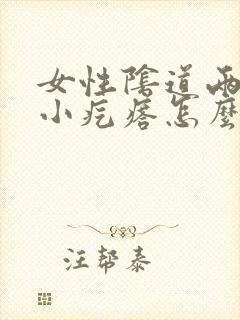 女性陰道兩
小疙瘩怎麼
汪帮泰